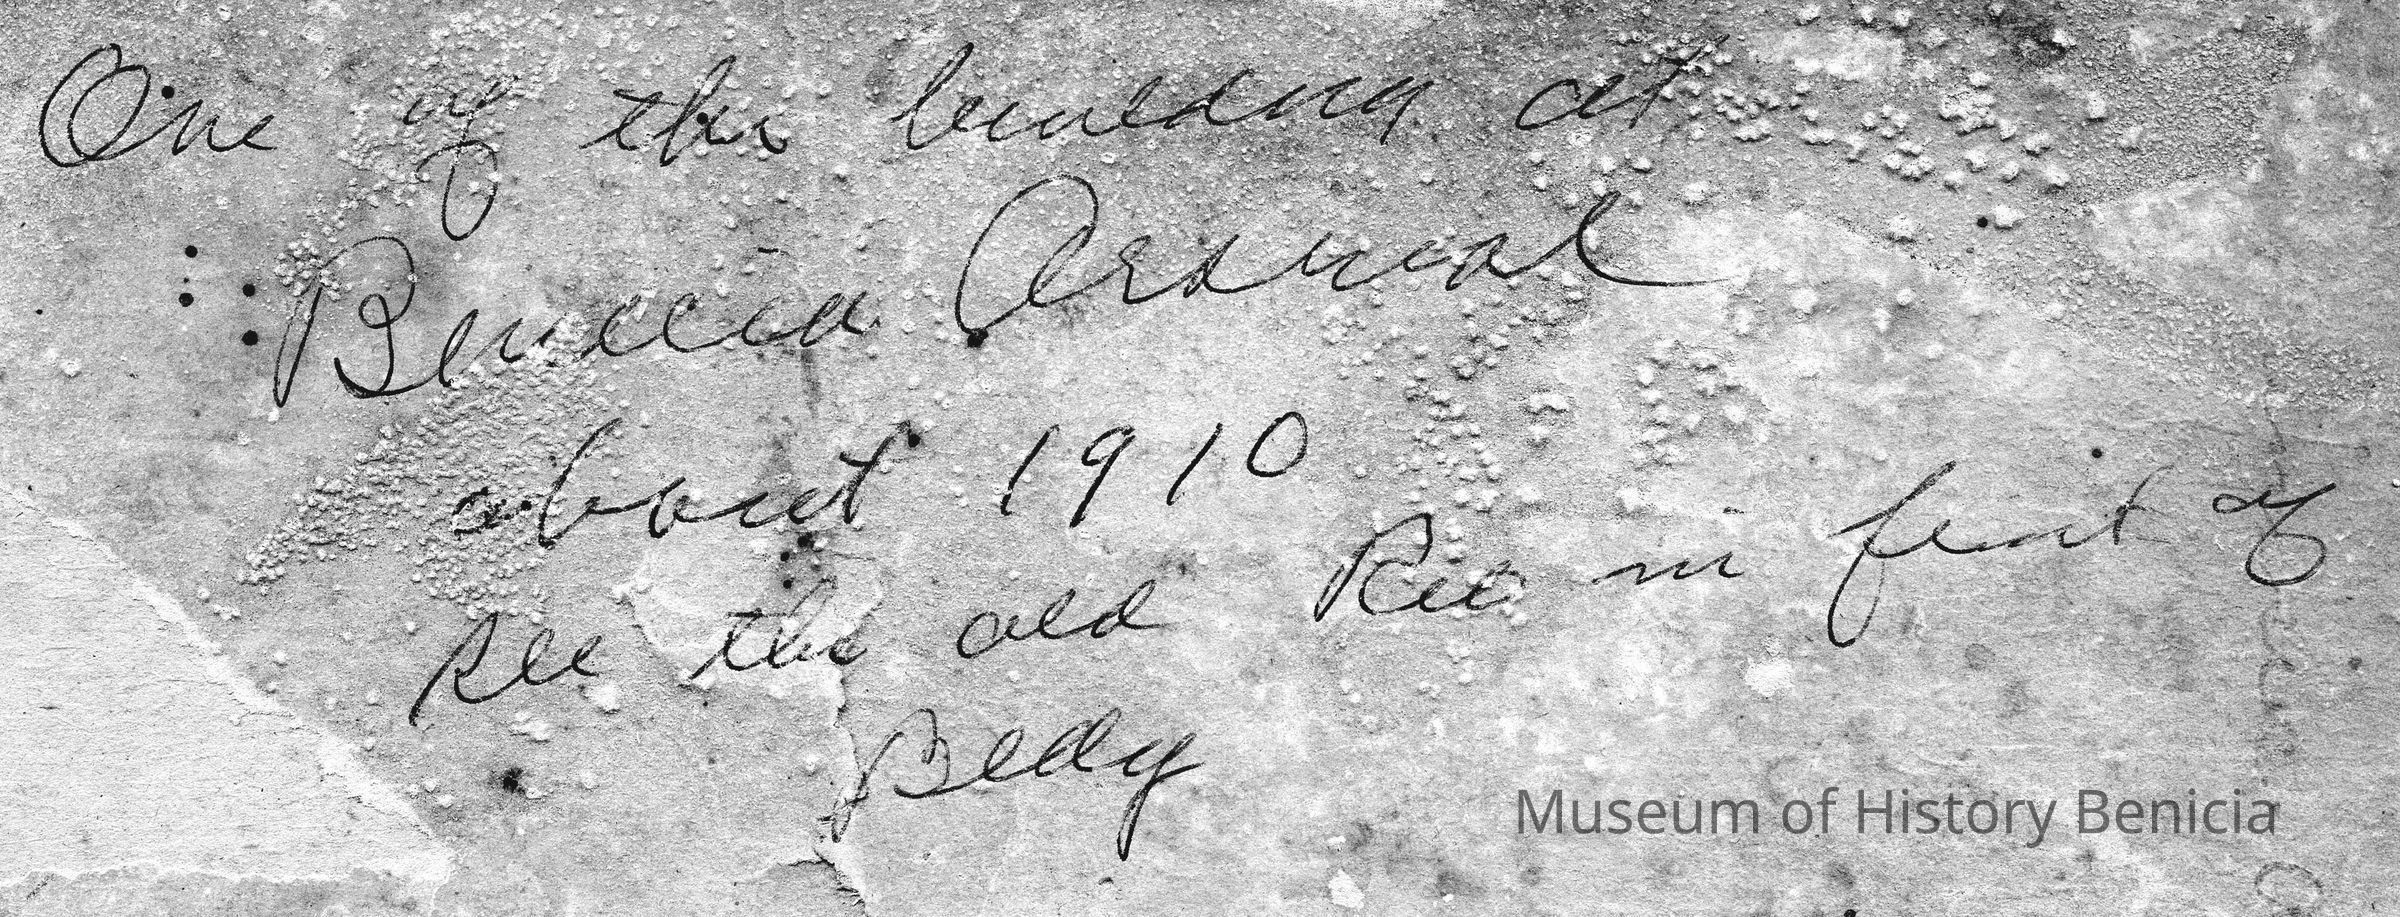 One of the building at
Benicia Arsenal
about 1910
See the old Reo in front of
Bldg
Museum of History Benicia